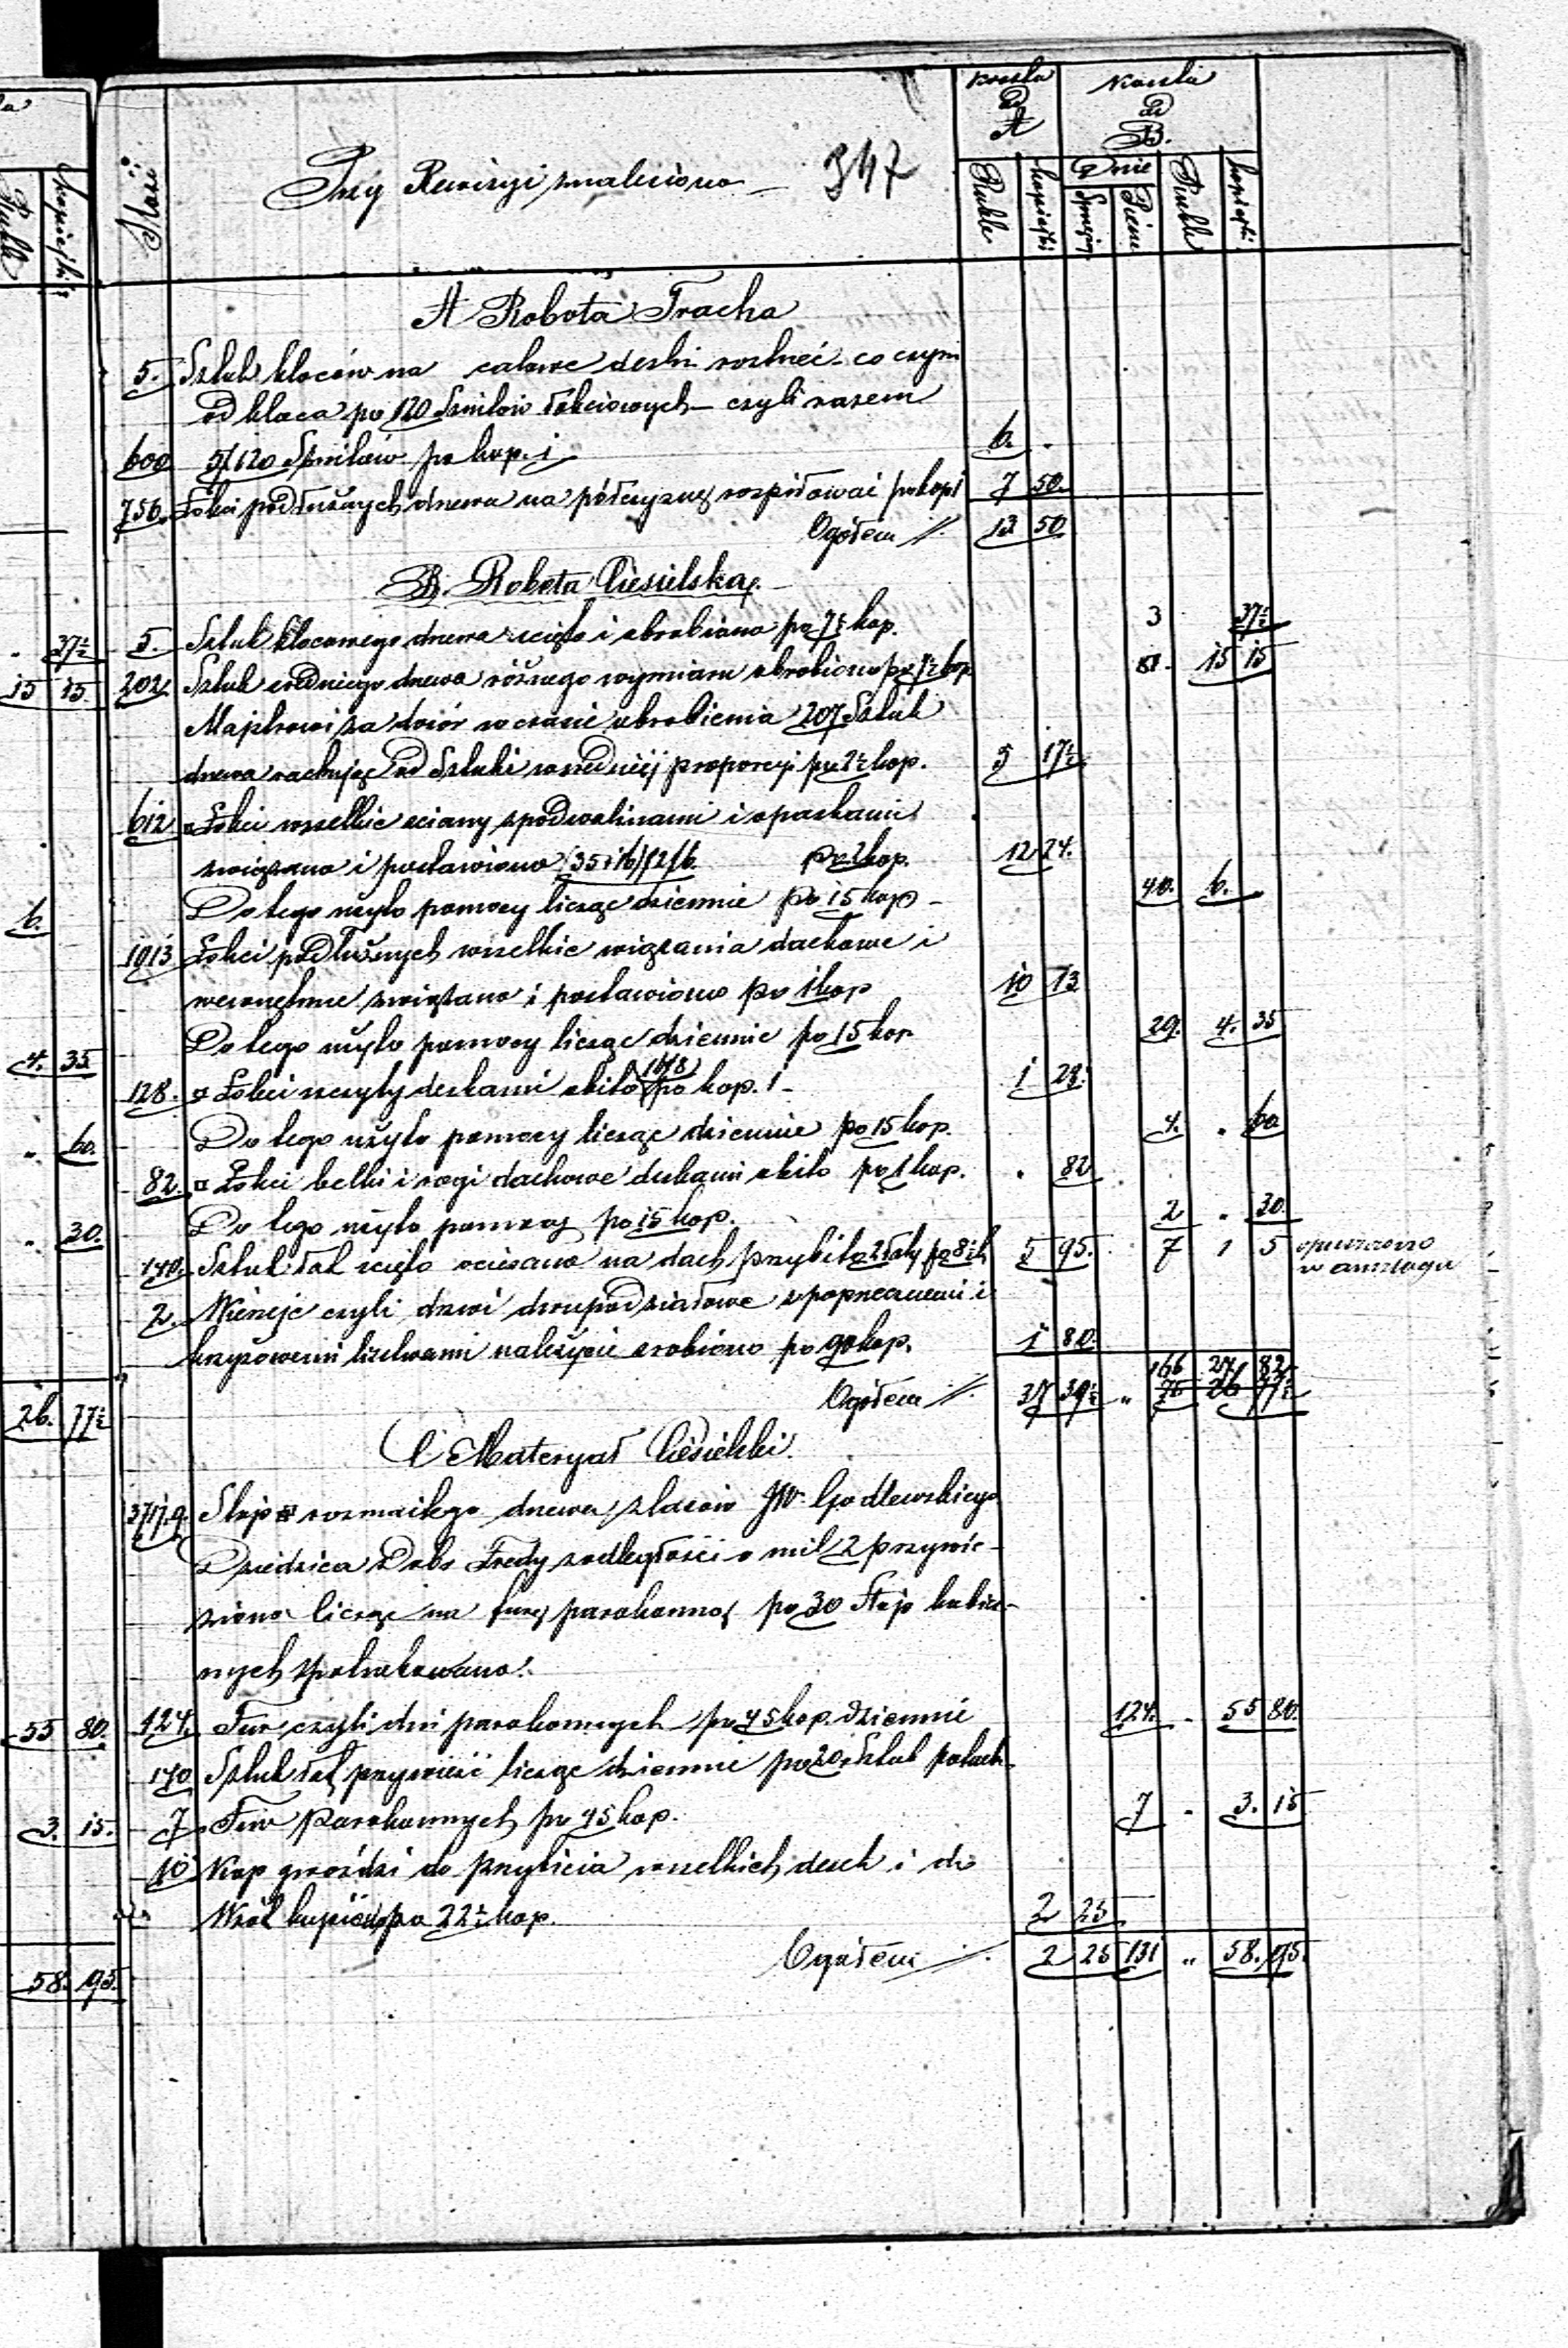 Ilość
Przy Rewizyi znaleziono
347
Koszta ad A
Koszta ad B.
Rubla
kopiejki
Dnie
Sprzęż
Piesze
Ruble
kopiejki
Ruble
kopiejki
A Robota Tracka
5. Sztuk kloców na calowe deski rznięć co czyni
od kloca po 120 Sznitów łokciowych czyli razem
600 5/120 Sznitów po kop. 1 6. "
750. Łokci podłużnych drzewa na połowiznę rozpiłować po kop 1 7 50.
Ogółem //. 13. 50.
B. Robota Ciesielska.
37½ 5. Sztuk klocowego drzewa ścięto i obrobiono po 7½ kop. 3 37½
15 15. 202. Sztuk średniego drzewa różnego wymiaru obrobiono po 7½ kop 15 15
Majstrowi za dozór w czasie obrobienia 207 Sztuk
drzewa rachując od Sztuki w średniej proporcyi po 2½ kop. 5 17½
612 □ Łokci wszelkie ściany z podwalinami i opaskami
związano i postawiono po 2 kop. 12 24.
6. Do tego użyto pomocy licząc dziennie po 15 kop 40. 6. "
1013 Łokci podłużnych wszelkie wiązania dachowe i
wewnętrzne związano i postawiono po 1 kop 10 13
4. 35 Do tego użyto pomocy licząc dziennie po 15 kop 29. 4. 35
128. □ Łokci szczyty deskami obito 16/8 po kop. 1 1 28.
" 60. Do tego użyto pomocy licząc dziennie po 15 kop. 4. " 60
82. □ Łokci belki i rogi dachowe deskami obito po 1 kop. " 82
" 30. Do tego użyto pomocy po 15 kop. 2 " 30.
140. Sztuk łat ścięto ociosano na dach przybito 5 95. 7 1 5 opuszczono w anszlagu
2. Wierzeje czyli drzwi dwupodziałowe z poprzecznemi i
krzyżowemi listwami należycie zrobiono po 90 kop. 1 80.
166 27 82½
26. 77½ Ogółem //. 37 39½ " 76 26 77½
C Materyał Ciesielski.
3717.9. Stóp □ rozmaitego drzewa z lasów JW. Godlewskiego
Dziedzica Dóbr z odległości o mil 2 przywie-
ziono licząc na furę parokonną po 30 Stóp kubicz-
nych potrzebowano.
55 80. 124. Fur czyli dni parokonnych po 45 kop. dziennie 124. " 55 80.
140 Sztuk łat przywieść licząc dziennie po 20 Sztuk
3. 15. 7 Fur parokonnych po 45 kop. 7 " 3. 15
10 Kop gwoździ do przybicia wszelkich desek i do
Wrót kupiono po 22½ kop. 2 25
58. 95. Ogółem //. 2 25 131 " 58. 95.